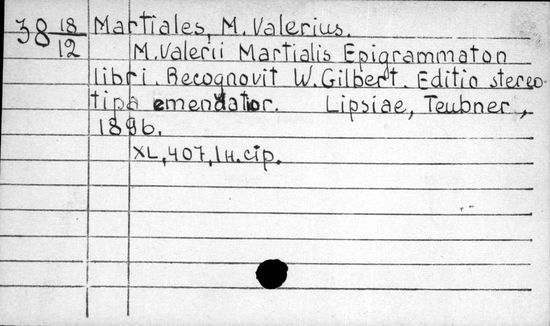 38 18/12 Martiales, M. Valerius.
M. Valerii Martialis Epigrammaton
libri. Recognovit W. Gilbert. Editio stereo-
tipa emendatior. Lipsiae, Teubner,
1896.
XL, 407, 1 н. стр.